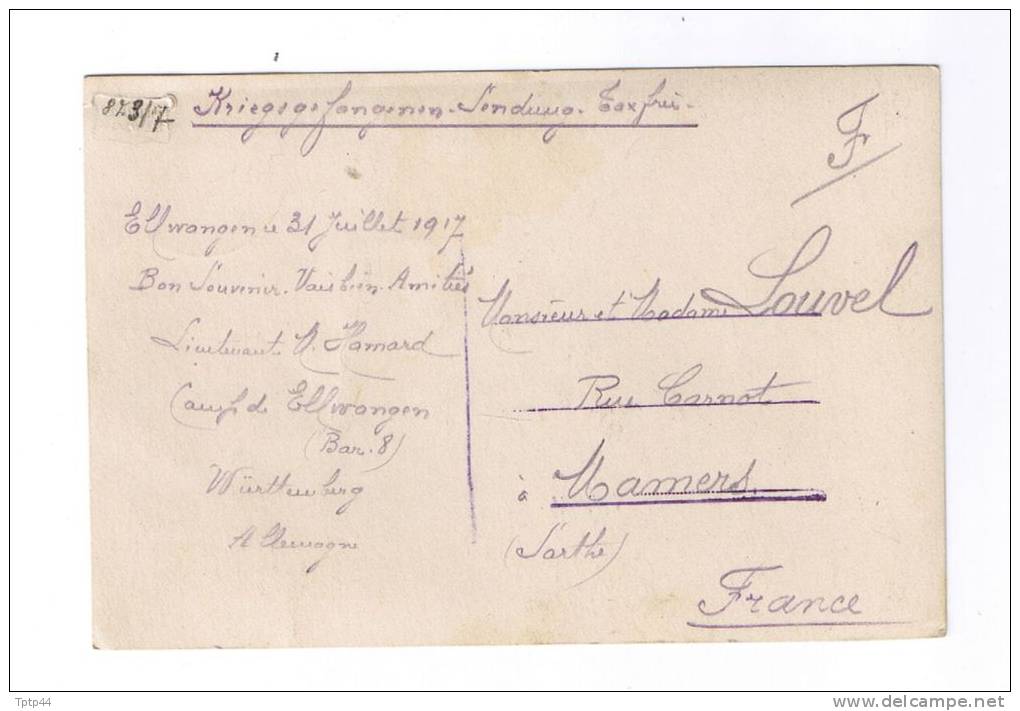 873/7
Kriegsgefangenen-Sendung. Taxfrei-
F
Ellwangen le 31 Juillet 1917
Bon Souvenir. Vais bien. Amitiés
Lieutenant M. Hamard
Camp de Ellwangen
(Bar. 8)
Württemberg
Allemagne
Monsieur et Madame Louvel
Rue Carnot
à Mamers
(Sarthe)
France
Tptp44
www.delcampe.net